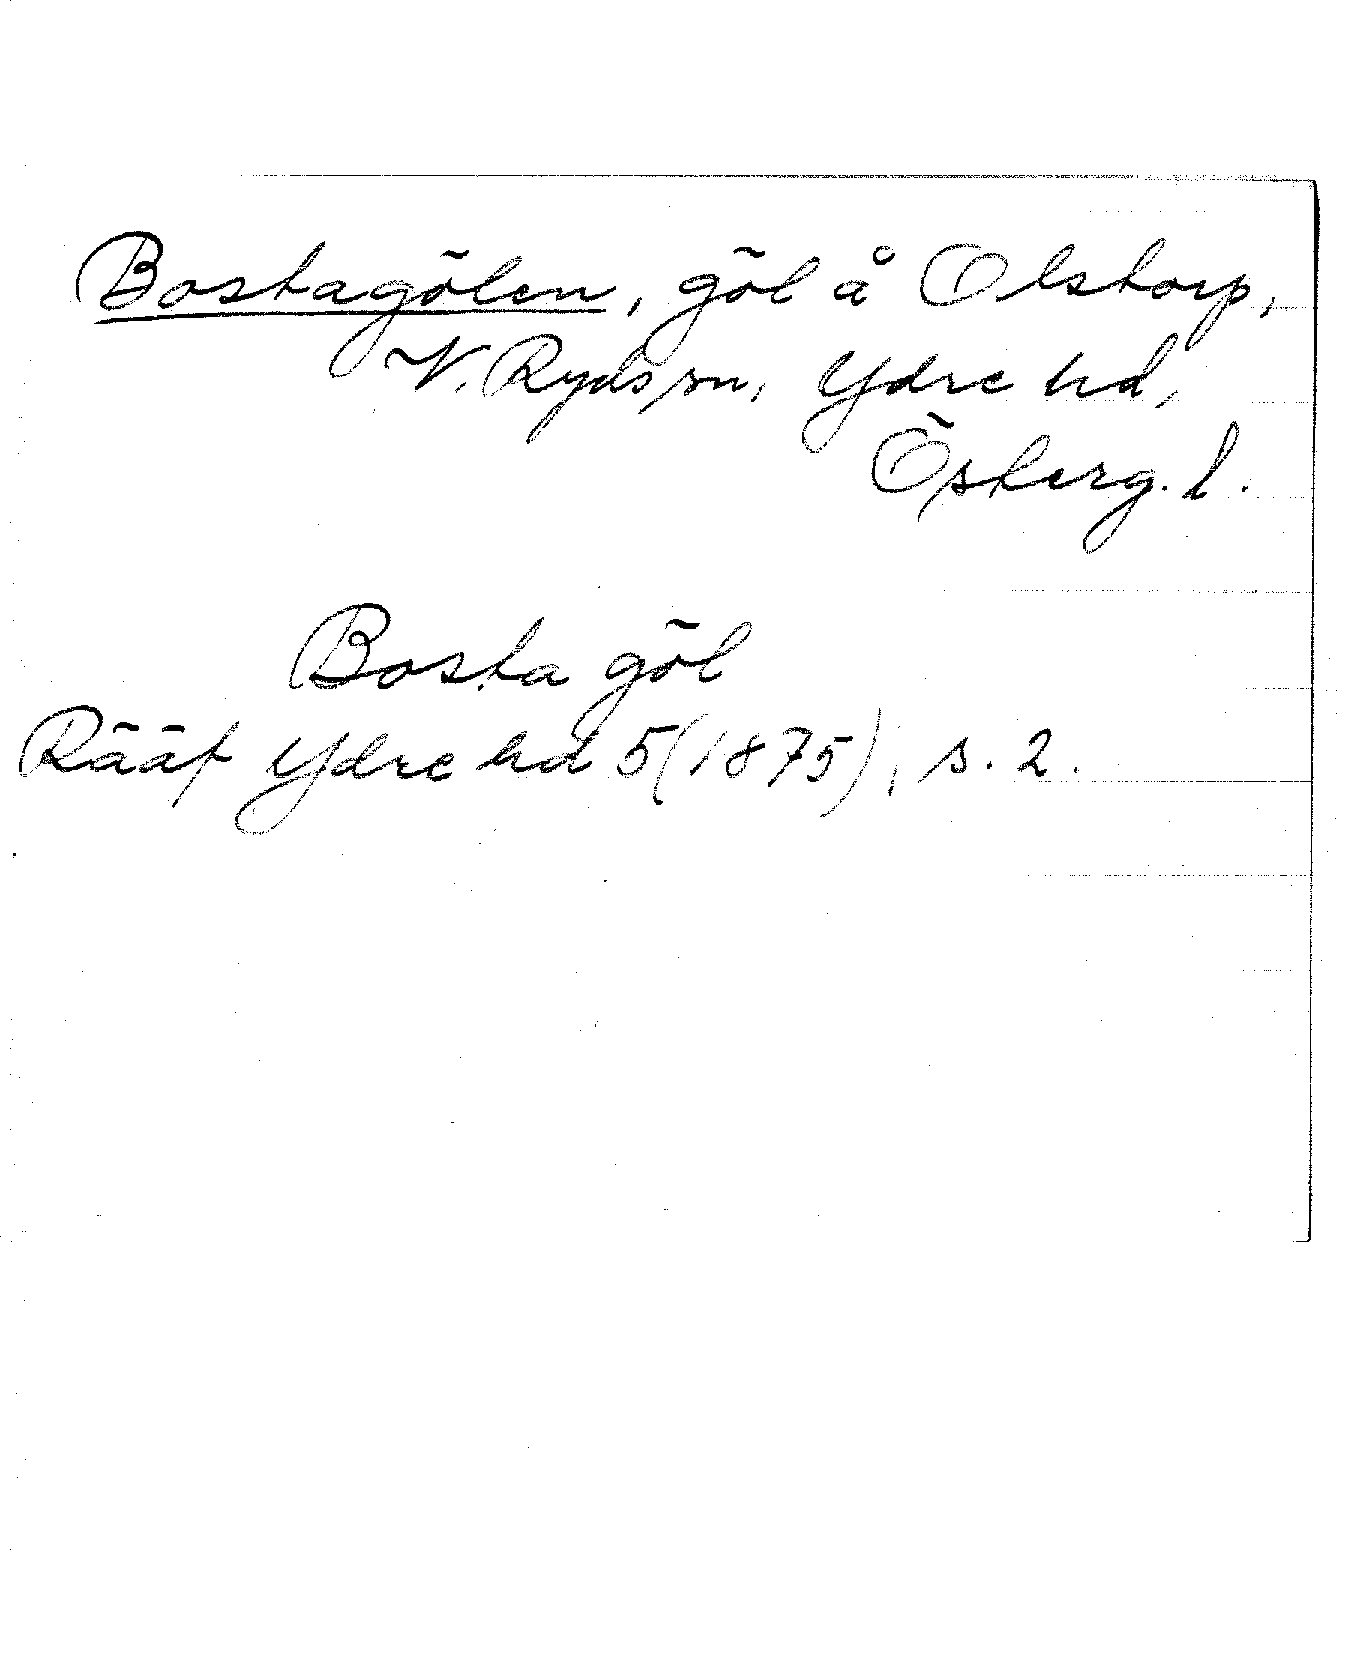 Bostagölen, göl å Olstorp,
V. Ryds sn, Ydre hd,
Österg. l.
Bosta göl
Rääf Ydre hd 5 (1875), s. 2.